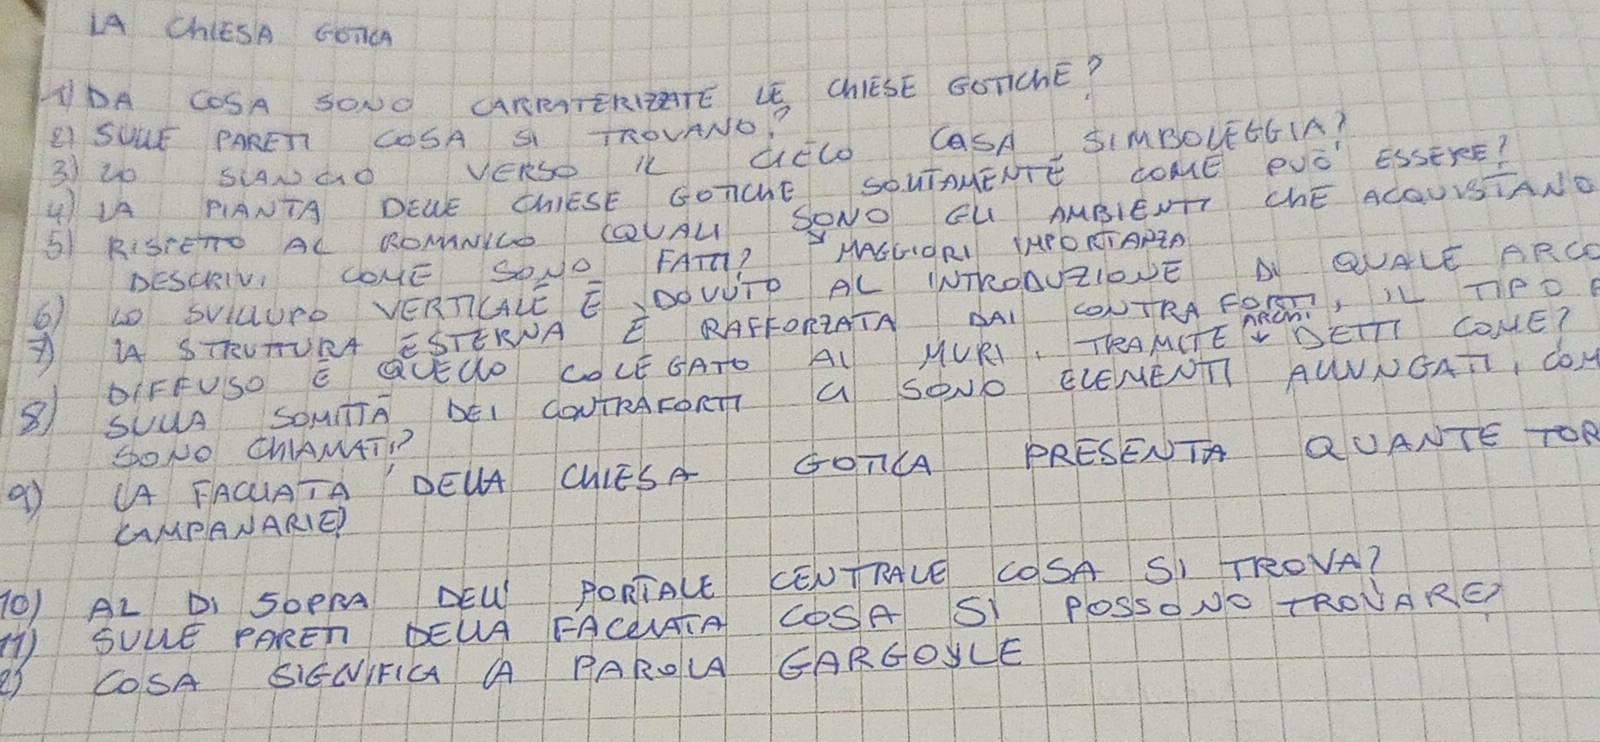 LA CHIESA GOTICA
1) DA COSA SONO CARRATERIZZATE LE CHIESE GOTICHE?
2) SULLE PARETI COSA SI TROVANO?
3) LO SLANCIO VERSO IL CIELO CASA SIMBOLEGGIA?
4) LA PIANTA DELLE CHIESE GOTICHE SOLITAMENTE COME PUÒ ESSERE?
5) RISPETTO AL ROMANICO QUALI SONO GLI AMBIENTI CHE ACQUISTANO
DESCRIVI COME SONO FATTI? MAGGIORI IMPORTANZA
6) LO SVILUUPO VERTICALE È DOVUTO AL INTRODUZIONE DI QUALE ARCO
7) LA STRUTTURA ESTERNA È RAFFORZATA DAI CONTRAFORTI, IL TIPO
DIFFUSO È QUELLO COLEGATO AI MURI, TRAMITE ARCHI DETTI COME?
8) SULLA SOMITTÀ DEI CONTRAFORTI CI SONO ELEMENTI ALLUNGATI, COM
SONO CHIAMATI?
9) LA FACCIATA DELLA CHIESA GOTICA PRESENTA QUANTE TOR
CAMPANARIE?
10) AL DI SOPRA DELL' PORTALE CENTRALE COSA SI TROVA?
11) SULLE PARETI DELLA FACCIATA COSA SI POSSONO TROVARE?
2) COSA SIGNIFICA LA PAROLA GARGOYLE